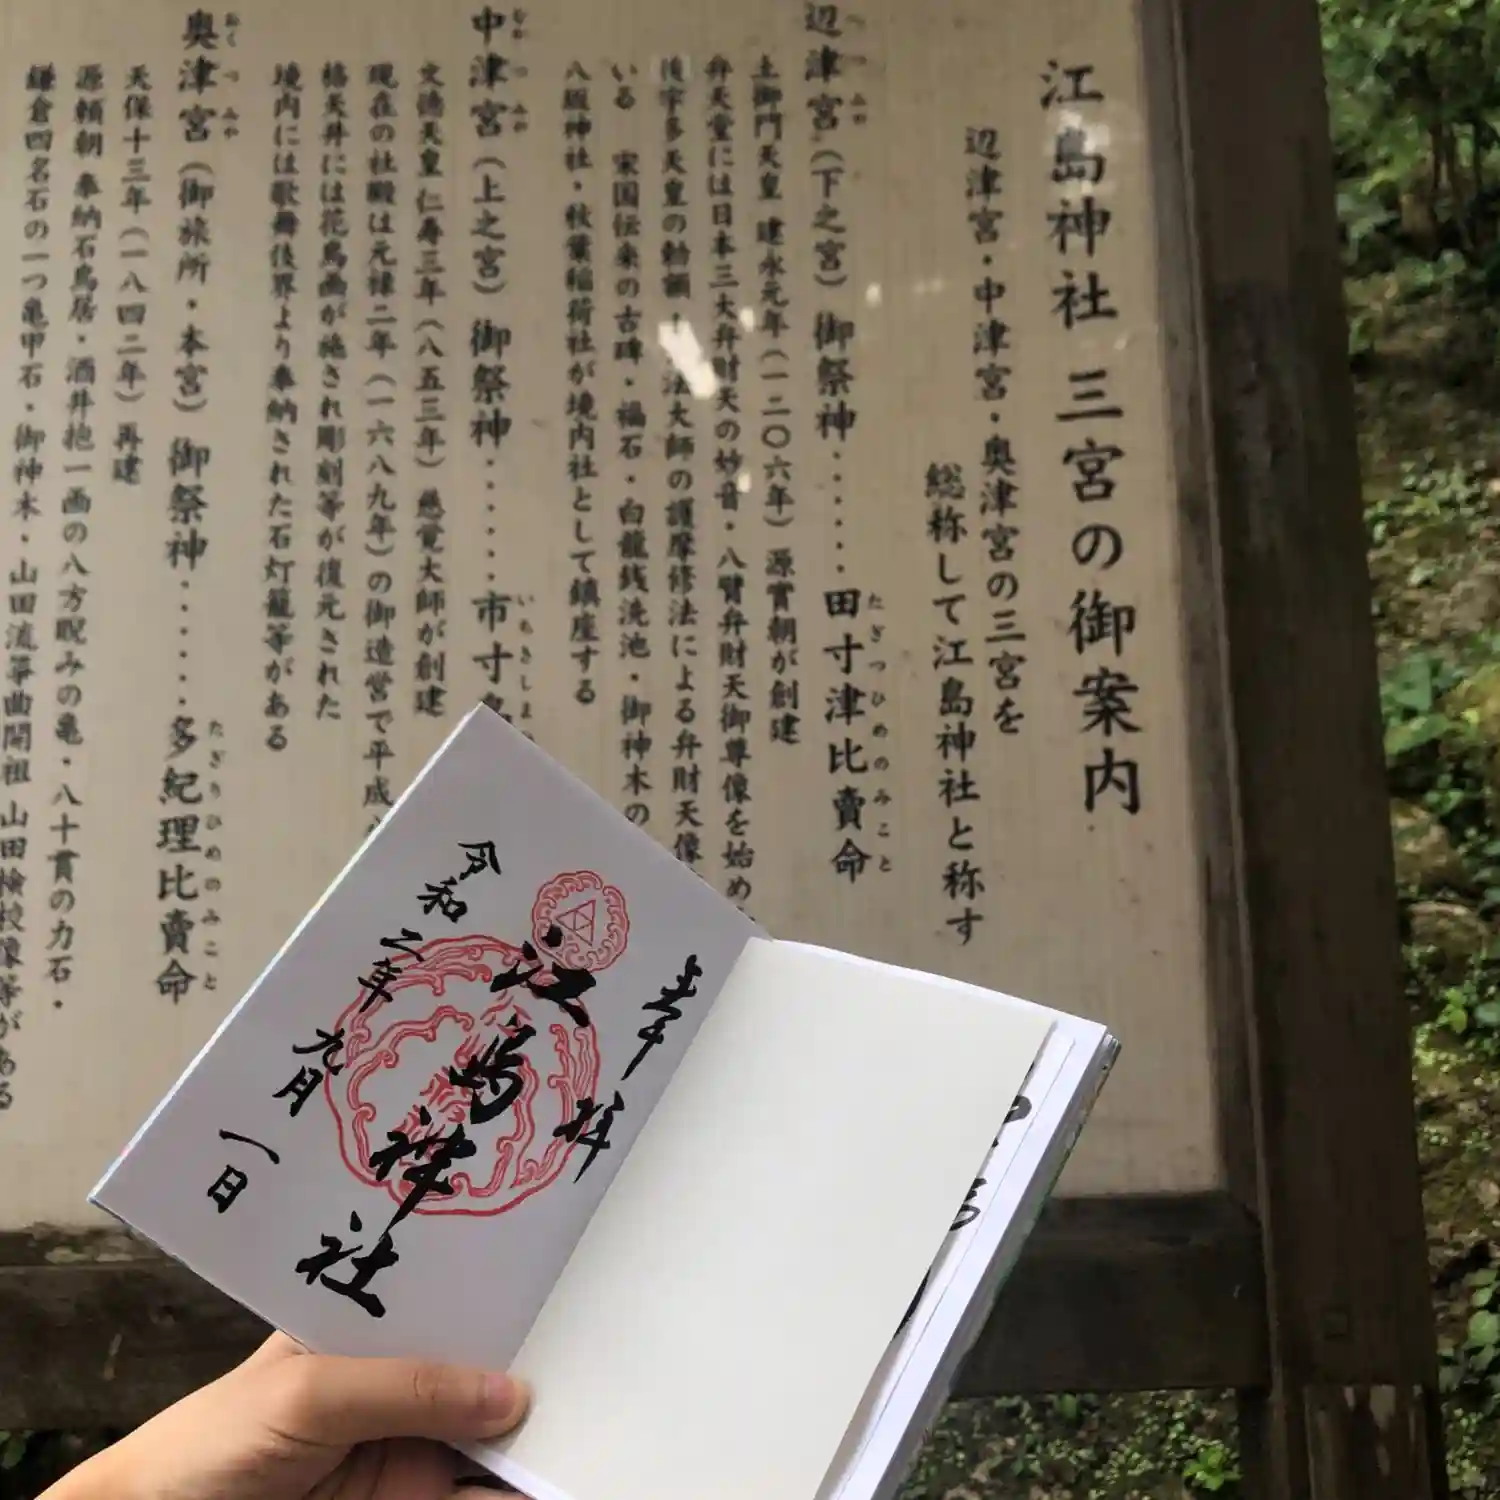 江島神社 三宮の御案内
辺津宮・中津宮・奥津宮の三宮を
総称して江島神社と称す
辺津宮（下之宮）御祭神・・・・・・田寸津比賣命
へつみや
たぎつひめのみこと
土御門天皇 建永元年（一二〇六年）源實朝が創建
弁天堂には日本三大弁財天の妙音・八臂弁財天御尊像を始め
後宇多天皇の勅額・ 法大師の護摩修法による弁財天像
いる 宋国伝来の古碑・福石・白龍銭洗池・御神木の
八坂神社・秋葉稲荷社が境内社として鎮座する
中津宮（上之宮）御祭神・・・・・・市寸島
なかつみや
いちきしま
文徳天皇 仁寿三年（八五三年）慈覚大師が創建
現在の社殿は元禄二年（一六八九年）の御造営で平成
格天井には花鳥画が施され彫刻等が復元された
境内には歌舞伎界より奉納された石灯籠等がある
奥津宮（御旅所・本宮）御祭神・・・・・・多紀理比賣命
おくつみや
たぎりひめのみこと
天保十三年（一八四二年）再建
源頼朝 奉納石鳥居・酒井抱一画の八方睨みの亀・八十貫の力石・
鎌倉四名石の一つ亀甲石・御神木・山田流箏曲開祖 山田検校像等がある
奉拝
江島神社
令和二年九月一日